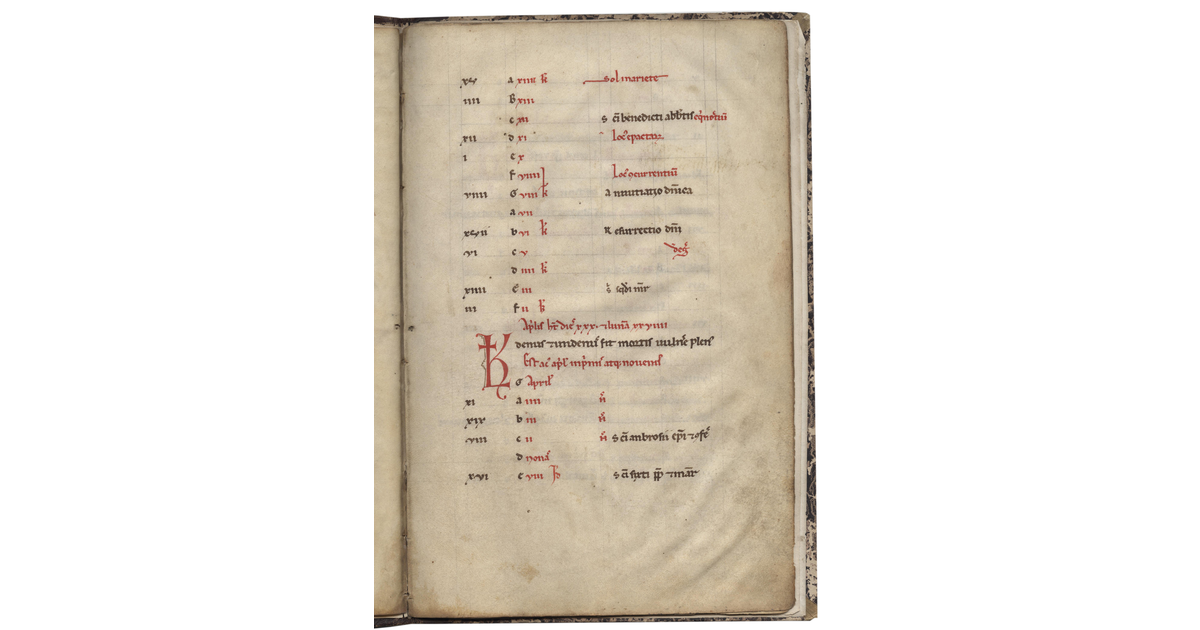 xv a xiiii kł Sol in ariete
iiii B xiii
c xii S sc̄i benedicti abb̄tis eq̄noctiū
xii d xi Loc' epactar̄
i e x
f viiii Loc' ꝯcurrentiū
viiii G viii kł Annuntiatio dn̄ica
a vii
b vi kł Resurrectio dn̄i
vi c v deḡ
d iiii kł
xiiii e iii
iii f ii kł
Ap̄lis hт̄ dies xxx. ⁊ luna xxviiii
K Denus ⁊ undenus fit mortis uulnere plenus
Est ac ap̄l in p̄mis atq; nouenis
G April'
xi a iiii n̄
xix b iii n̄
viii c ii n̄ S sc̄i ambrosii ep̄i ⁊ ꝯfes̄
d nonas
xvi e viii id S sc̄i sixti pp̄ ⁊ mar̄